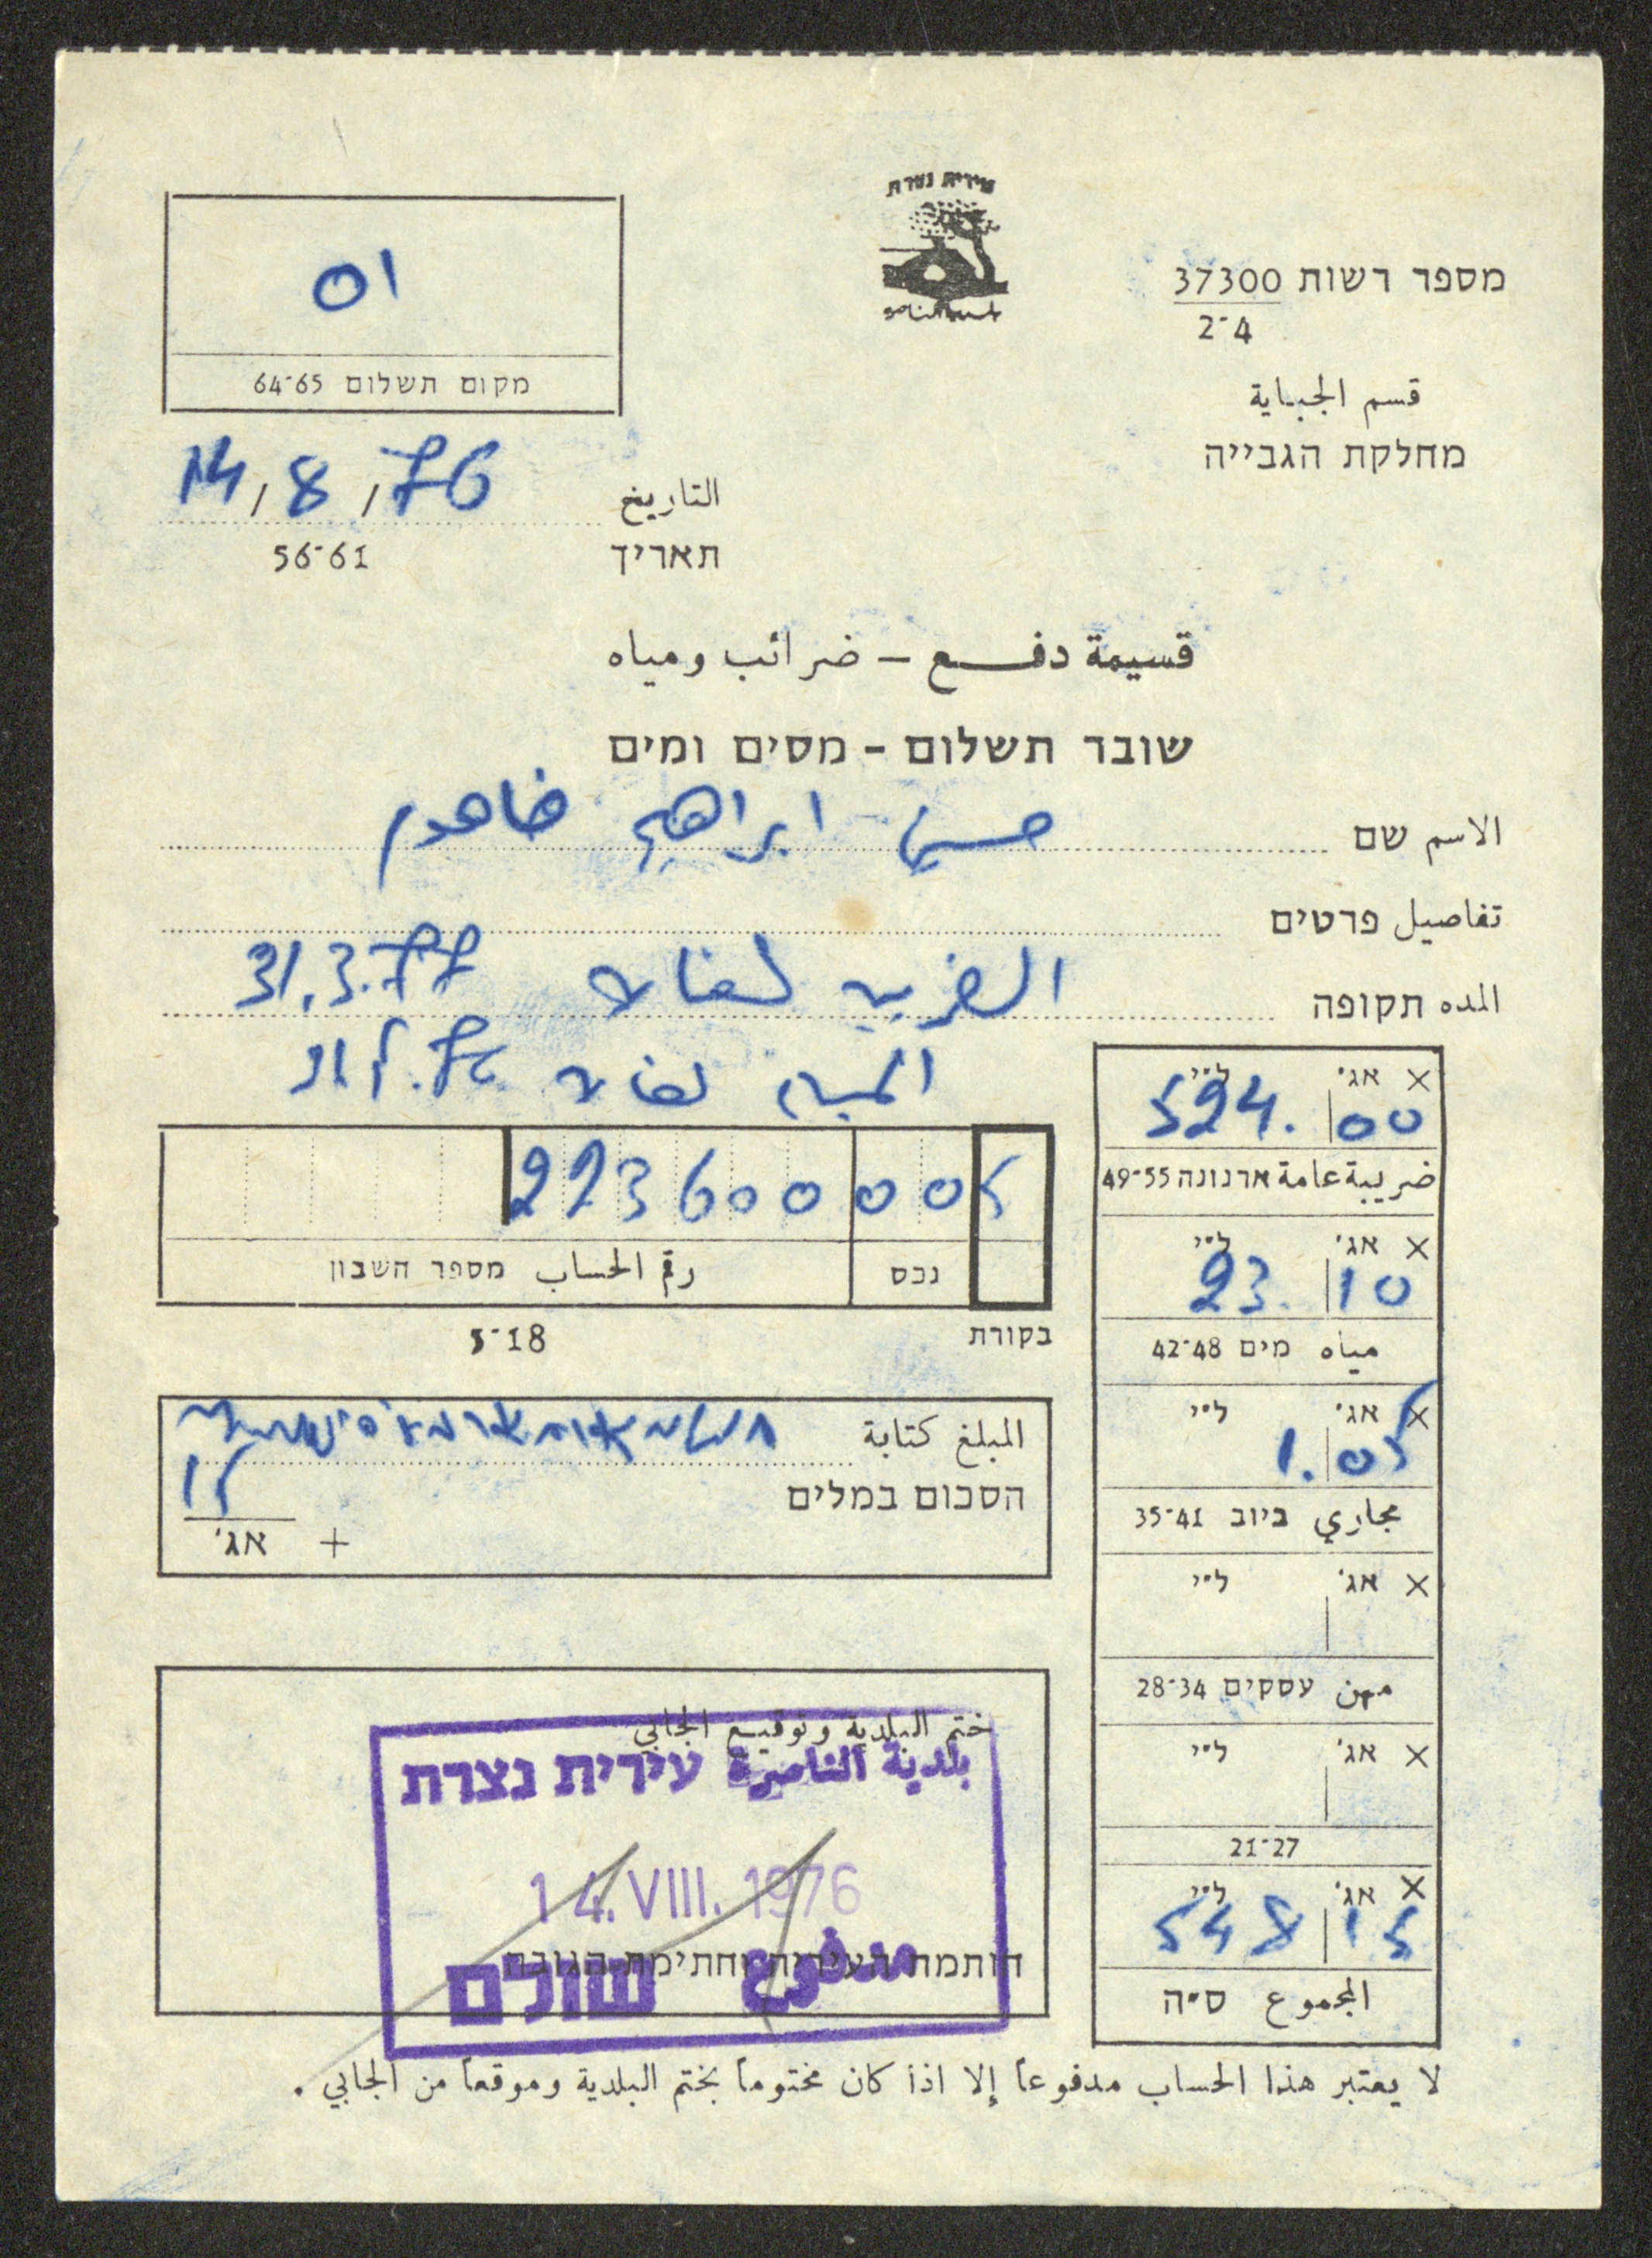 עירית נצרת
بلدية الناصرة
מספר רשות 37300
2-4
قسم الجباية
מחלקת הגבייה
01
מקום תשלום 64-65
التاريخ 14/8/76
תאריך 56-61
قسيمة دفع - ضرائب ومياه
שובר תשלום - מסים ומים
الاسم שם حسين ابراهيم
تفاصيل פרטים
المده תקופה الضريبه لغاية 31.3.77
المياه لغاية
22360000005
رقم الحساب מספר חשבון
נכס
5-18
בקורת
المبلغ كتابة
הסכום במלים
15
+ אג'
ختم البلدية وتوقيع الجابي
بلدية الناصرة עירית נצרת
14. VIII. 1976
חותמת העיריה וחתימת הגובה
دفع שולם
× אג' ל"י
524. 00
ضريبة عامة ארנונה 49-55
× אג' ל"י
23. 10
مياه מים 42-48
× אג' ל"י
1. 05
مجاري ביוב 35-41
× אג' ל"י
مهن עסקים 28-34
× אג' ל"י
21-27
× אג' ל"י
548 15
المجموع ס"ה
لا يعتبر هذا الحساب مدفوعاً إلا اذا كان مختوماً بختم البلدية وموقعاً من الجابي .